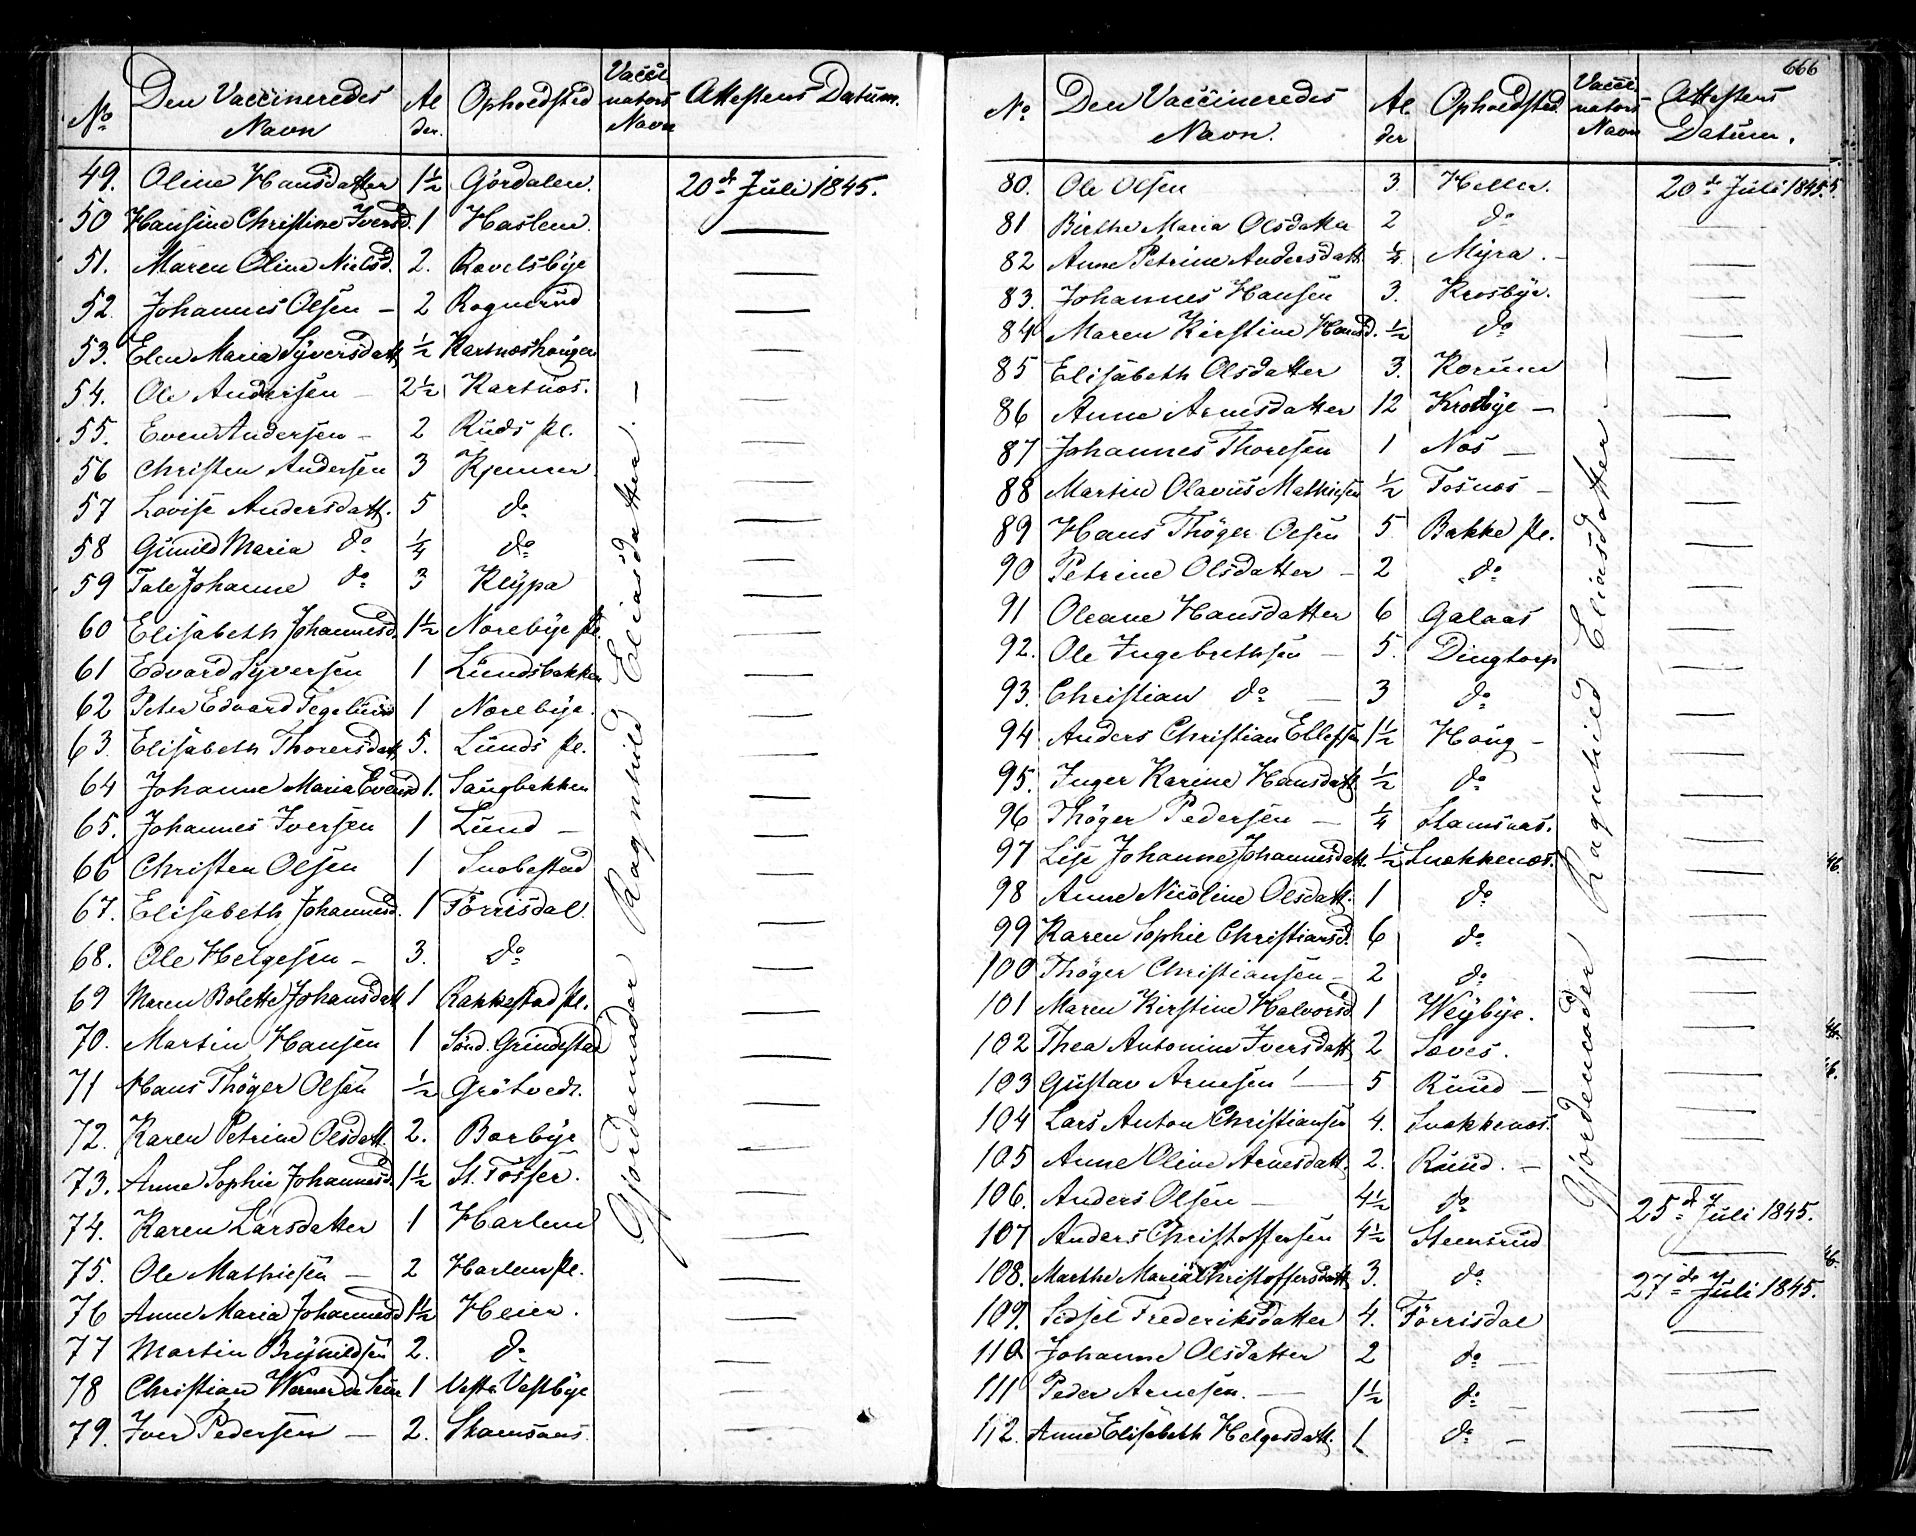 No Den Vaccineredes Navn Alder. Opholdsted Vaccinators Navn Attestens Datum.
49. Oline Hansdatter 1½ Gördalen. 20de Juli 1845.
50 Hansine Christine Iversd. 1 Haslem. —
51. Maren Oline Nielsd. 2. Ravelsbÿe —
52. Johannes Olsen — 2 Rognerud —
53. Elen Maria Syversdatt ½ Kartnæshougen —
54. Ole Andersen — 2½ Kartnæs. —
55. Even Andersen — 2 Ruds Pl. —
56 Christen Andersen 3 Kjenner —
57 Lovise Andersdatt. 5 do —
58 Gunild Maria do ¼ do —
59 Tale Johanne do 3 Klÿpa —
60 Elisabeth Johannesd. 1½ Norebÿe Pl. —
61 Edvard Syversen 1 Lundsbakken —
62 Peter Edvard 1 Norebÿe. —
63. Elisabeth Thorersdatt 5. Lunds Pl. —
64 Johanne Maria Evensd 1. Saugbakken —
65. Johannes Iversen 1 Lund — —
66 Christen Olsen 1 Snobestad —
67. Elisabeth Johannesd. 1 Törrisdal —
68. Ole Helgesen — 3. do —
69 Maren Bolette Johansdatt 1 Rakkestad Pl. —
70. Martin Hansen 1 Sönd. Grindestad —
71 Hans Thöger Olsen ½ Grötvedt. —
72. Karen Petrine Olsdatt. 2. Borbÿe —
73. Anne Sophie Johannesd. 1½ St. Tosser. —
74. Karen Larsdatter 1 Harlem —
75. Ole Mathiesen — 2 Harlem Pl. —
76 Anne Maria Johannesd 1½ Heier. —
77 Martin Brÿnildsen 2. do —
78 Christian Werner de Seue 1 Vestre Vestbÿe —
79. Iver Pedersen — 2. Stamsaas. —
Gjordemoder Ragnhild Eliasdatter. —
666
No Den Vaccineredes Navn. Alder Opholdsted. Vaccinators Navn Attestens Datum.
80. Ole Olsen 3. Heller. 20de Juli 1845.
81 Birthe Maria Olsdatter 2 do —
82 Anne Petrine Andersdatt. ¼ Mÿra. — —
83. Johannes Hansen 3. Krosbÿe. —
84 Maren Kirstine Hansd. ½ do —
85 Elisabeth Olsdatter 3. Korum —
86 Anne Arnesdatter 12 Krosbÿe — —
87 Johannes Thoresen 1 Næs — —
88 Martin Olavus Mathiesen ½ Fosnæs — —
89 Hans Thöger Olsen 5. Bakke Pl. —
90 Petrine Olsdatter — 2 do —
91 Oleane Hansdatter 6 Galaas —
92. Ole Ingebrethsen — 5. Dingtorp —
93. Christian do — 3 do —
94 Anders Christian Ellefsen 1½ Houg — —
95. Inger Karine Hansdatt ½ do —
96 Thöger Pedersen — ¼ Stamsaas. —
97 Lise Johanne Johannesdatt. ½ Snekkenæs. —
98 Anne Nicoline Olsdatt. 1 do —
99 Karen Sophie Christiansd. 6 do —
100 Thöger Christiansen — 2 do —
101 Maren Kirstine Halvorsd. 1 Weÿbÿe. —
102 Thea Antonine Iversdatt 2 Sæves. —
103 Gustav Arnesen — 5 Ruud — —
104 Lars Anton Christiansen 4. Snekkenæs. —
105 Anne Oline Arnesdatt. 2. Ruud. — —
106. Anders Olsen — 4½ do 25de Juli 1845.
107 Anders Christoffersen 4½ Steensrud —
108. Marthe Maria Christoffersdatt 3. do 27de Juli 1845.
109. Sidsel Frederiksdatter 4. Törrisdal —
110 Johanne Olsdatter 2 do — —
111 Peder Arnesen. — 1½ do — —
112. Anne Elisabeth Helgesdatt. 1 do — —
Gjordemoder Ragnhild Eliasdatter —